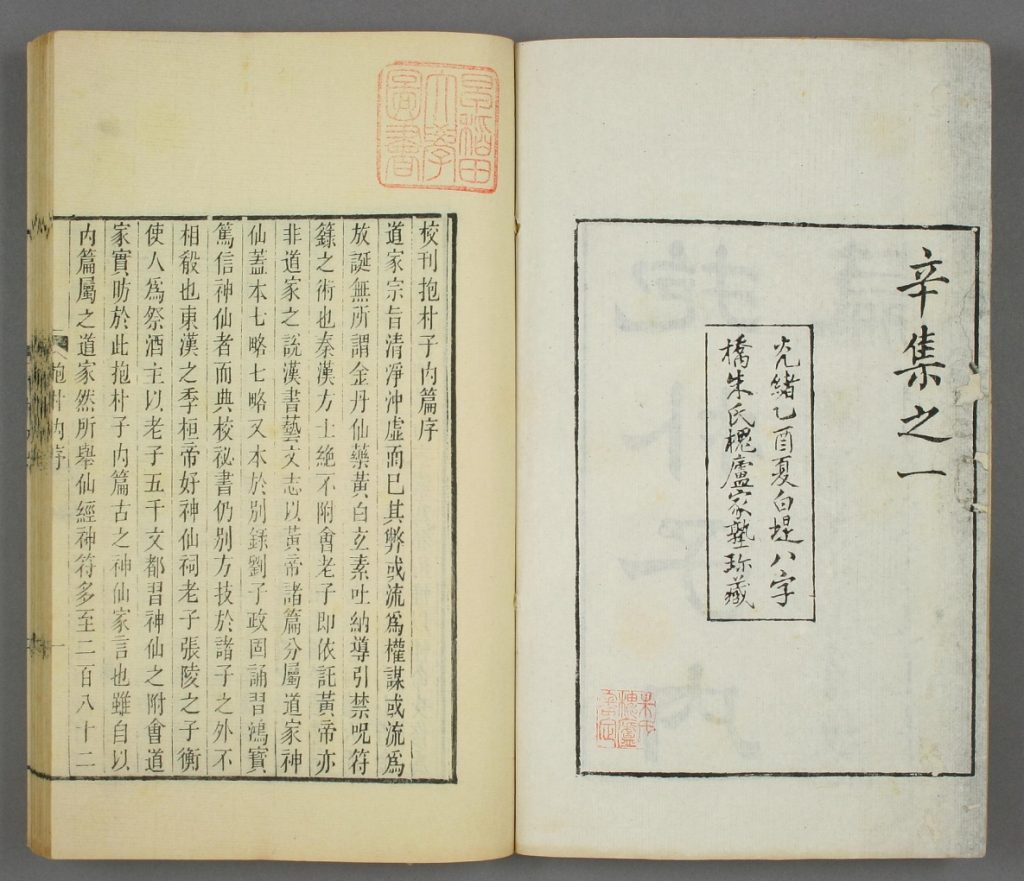 辛集之一
光緒乙酉夏白堤八字
橋朱氏槐廬家塾珍藏
早稻田
大學
圖書
校刊抱朴子內篇序
道家宗旨清凈沖虛而已其弊或流爲權謀或流爲
放誕無所謂金丹仙藥黃白玄素吐納導引禁呪符
籙之術也秦漢方士絶不附會老子即依託黃帝亦
非道家之說漢書藝文志以黃帝諸篇分屬道家神
仙蓋本七略七略又本於別錄劉子政固誦習鴻寶
篤信神仙者而典校祕書仍別方技於諸子之外不
相殽也東漢之季桓帝好神仙祠老子張陵之子衡
使人爲祭酒主以老子五千文都習神仙之附會道
家實昉於此抱朴子內篇古之神仙家言也雖自以
內篇屬之道家然所舉仙經神符多至二百八十二
抱朴內序
一